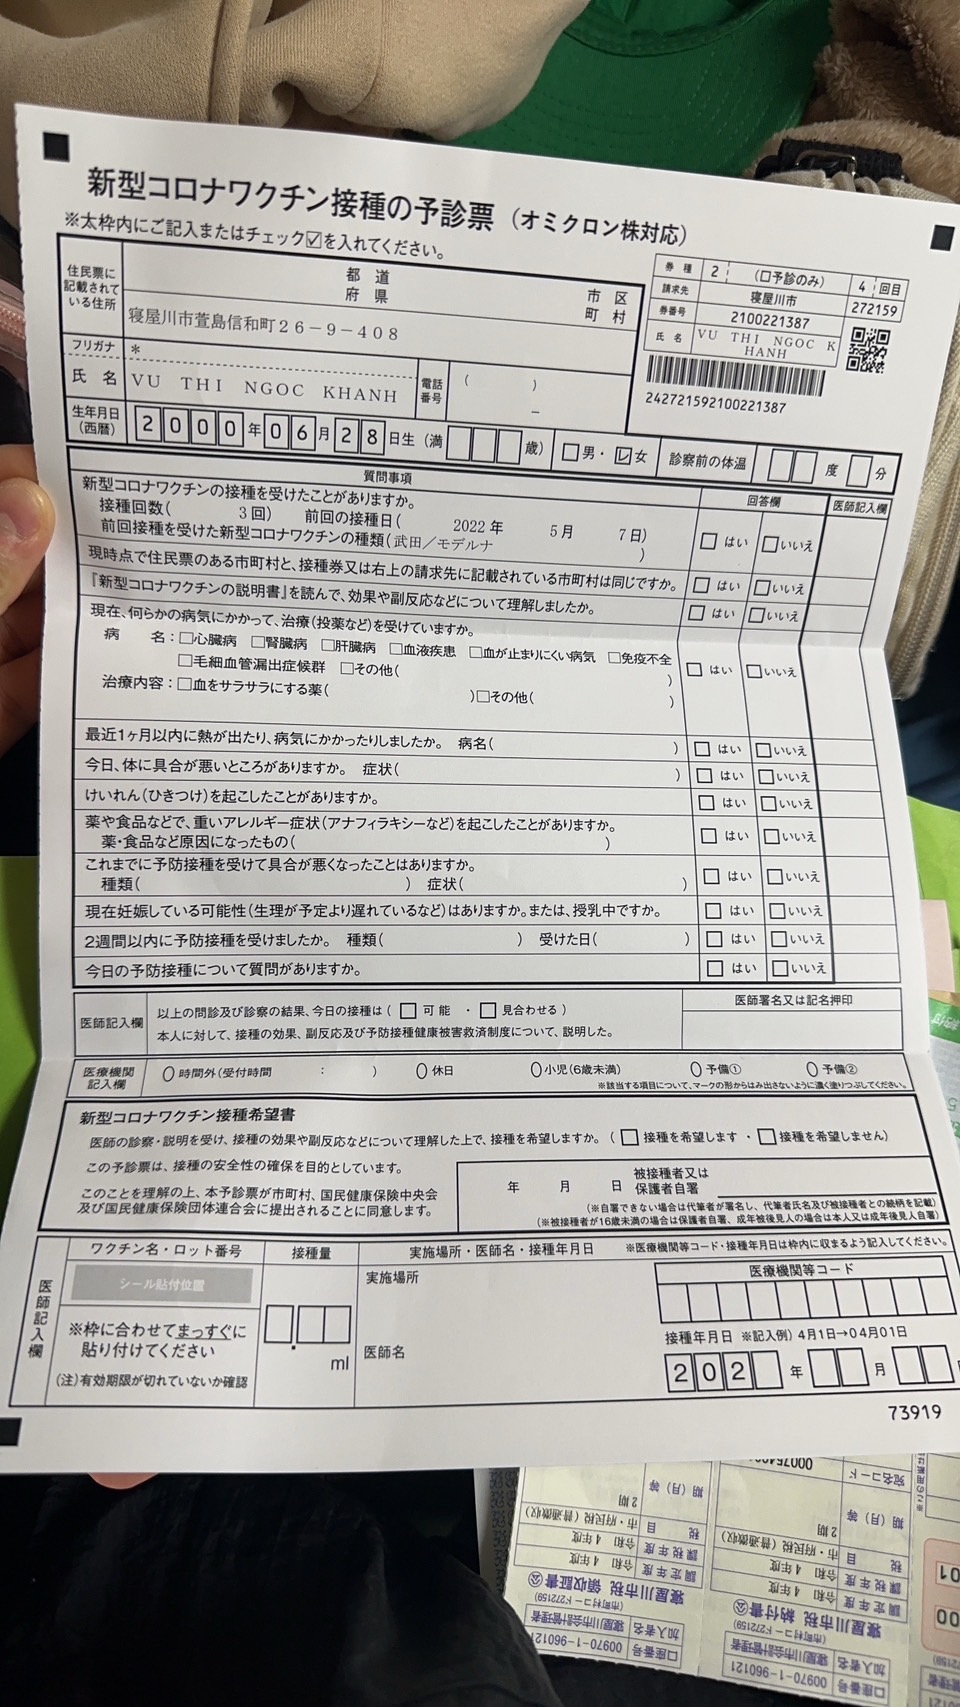 新型コロナワクチン接種の予診票（オミクロン株対応）
※太枠内にご記入またはチェック☑を入れてください。
住民票に
記載されて
いる住所
都 道
府 県
市 区
町 村
寝屋川市萱島信和町２６－９－４０８
フリガナ
＊
氏 名
VU THI NGOC KHANH
電話
番号
( )
－
生年月日
(西暦)
2000年06月28日生（満 歳）
□男・☑女
診察前の体温 度 分
券 種 2 （口予診のみ） 4 回目
請求先 寝屋川市 272159
券番号 2100221387
氏 名 VU THI NGOC K
HANH
242721592100221387
質問事項
回答欄
医師記入欄
新型コロナワクチンの接種を受けたことがありますか。
接種回数( 3回) 前回の接種日( 2022年 5月 7日)
前回接種を受けた新型コロナワクチンの種類(武田／モデルナ )
□はい □いいえ
現時点で住民票のある市町村と、接種券又は右上の請求先に記載されている市町村は同じですか。
□はい □いいえ
『新型コロナワクチンの説明書』を読んで、効果や副反応などについて理解しましたか。
□はい □いいえ
現在、何らかの病気にかかって、治療(投薬など)を受けていますか。
病 名：□心臓病 □腎臓病 □肝臓病 □血液疾患 □血が止まりにくい病気 □免疫不全
□毛細血管漏出症候群 □その他( )
治療内容：□血をサラサラにする薬( )□その他( )
□はい □いいえ
最近1ヶ月以内に熱が出たり、病気にかかったりしましたか。 病名( )
□はい □いいえ
今日、体に具合が悪いところがありますか。 症状( )
□はい □いいえ
けいれん(ひきつけ)を起こしたことがありますか。
□はい □いいえ
薬や食品などで、重いアレルギー症状(アナフィラキシーなど)を起こしたことがありますか。
薬・食品など原因になったもの( )
□はい □いいえ
これまでに予防接種を受けて具合が悪くなったことはありますか。
種類( ) 症状( )
□はい □いいえ
現在妊娠している可能性(生理が予定より遅れているなど)はありますか。または、授乳中ですか。
□はい □いいえ
2週間以内に予防接種を受けましたか。 種類( ) 受けた日( )
□はい □いいえ
今日の予防接種について質問がありますか。
□はい □いいえ
医師記入欄
以上の問診及び診察の結果、今日の接種は（ □ 可 能 ・ □ 見合わせる ）
本人に対して、接種の効果、副反応及び予防接種健康被害救済制度について、説明した。
医師署名又は記名押印
医療機関
記入欄
時間外(受付時間 : )
休日
小児(6歳未満)
予備①
予備②
※該当する項目について、マークの形からはみ出さないように濃く塗りつぶしてください。
新型コロナワクチン接種希望書
医師の診察・説明を受け、接種の効果や副反応などについて理解した上で、接種を希望しますか。（ □ 接種を希望します ・ □ 接種を希望しません）
この予診票は、接種の安全性の確保を目的としています。
このことを理解の上、本予診票が市町村、国民健康保険中央会
及び国民健康保険団体連合会に提出されることに同意します。
年 月 日
被接種者又は
保護者自署
(※自署できない場合は代筆者が署名し、代筆者氏名及び被接種者との続柄を記載)
(※被接種者が16歳未満の場合は保護者自署、成年被後見人の場合は本人又は成年後見人自署)
医師記入欄
ワクチン名・ロット番号
シール貼付位置
※枠に合わせてまっすぐに
貼り付けてください
(注)有効期限が切れていないか確認
接種量
ml
実施場所・医師名・接種年月日
※医療機関等コード・接種年月日は枠内に収まるよう記入してください。
実施場所
医師名
医療機関等コード
接種年月日 ※記入例) 4月1日→04月01日
202 年 月
73919
宛名コード
期（月）等
2期
税 目
市・府民税（普通徴収）
課税年度
令和 4年度
調定年度
令和 4年度
寝屋川市税 領収証書 ㊢
(市町村コード272159)
加入者名 寝屋川市会計管理者
口座番号 00970-1-960121
期（月）等
2期
税 目
市・府民税（普通徴収）
課税年度
令和 4年度
調定年度
令和 4年度
寝屋川市税 納付書 ㊢
(市町村コード272159)
加入者名 寝屋川市会計管理者
口座番号 00970-1-960121